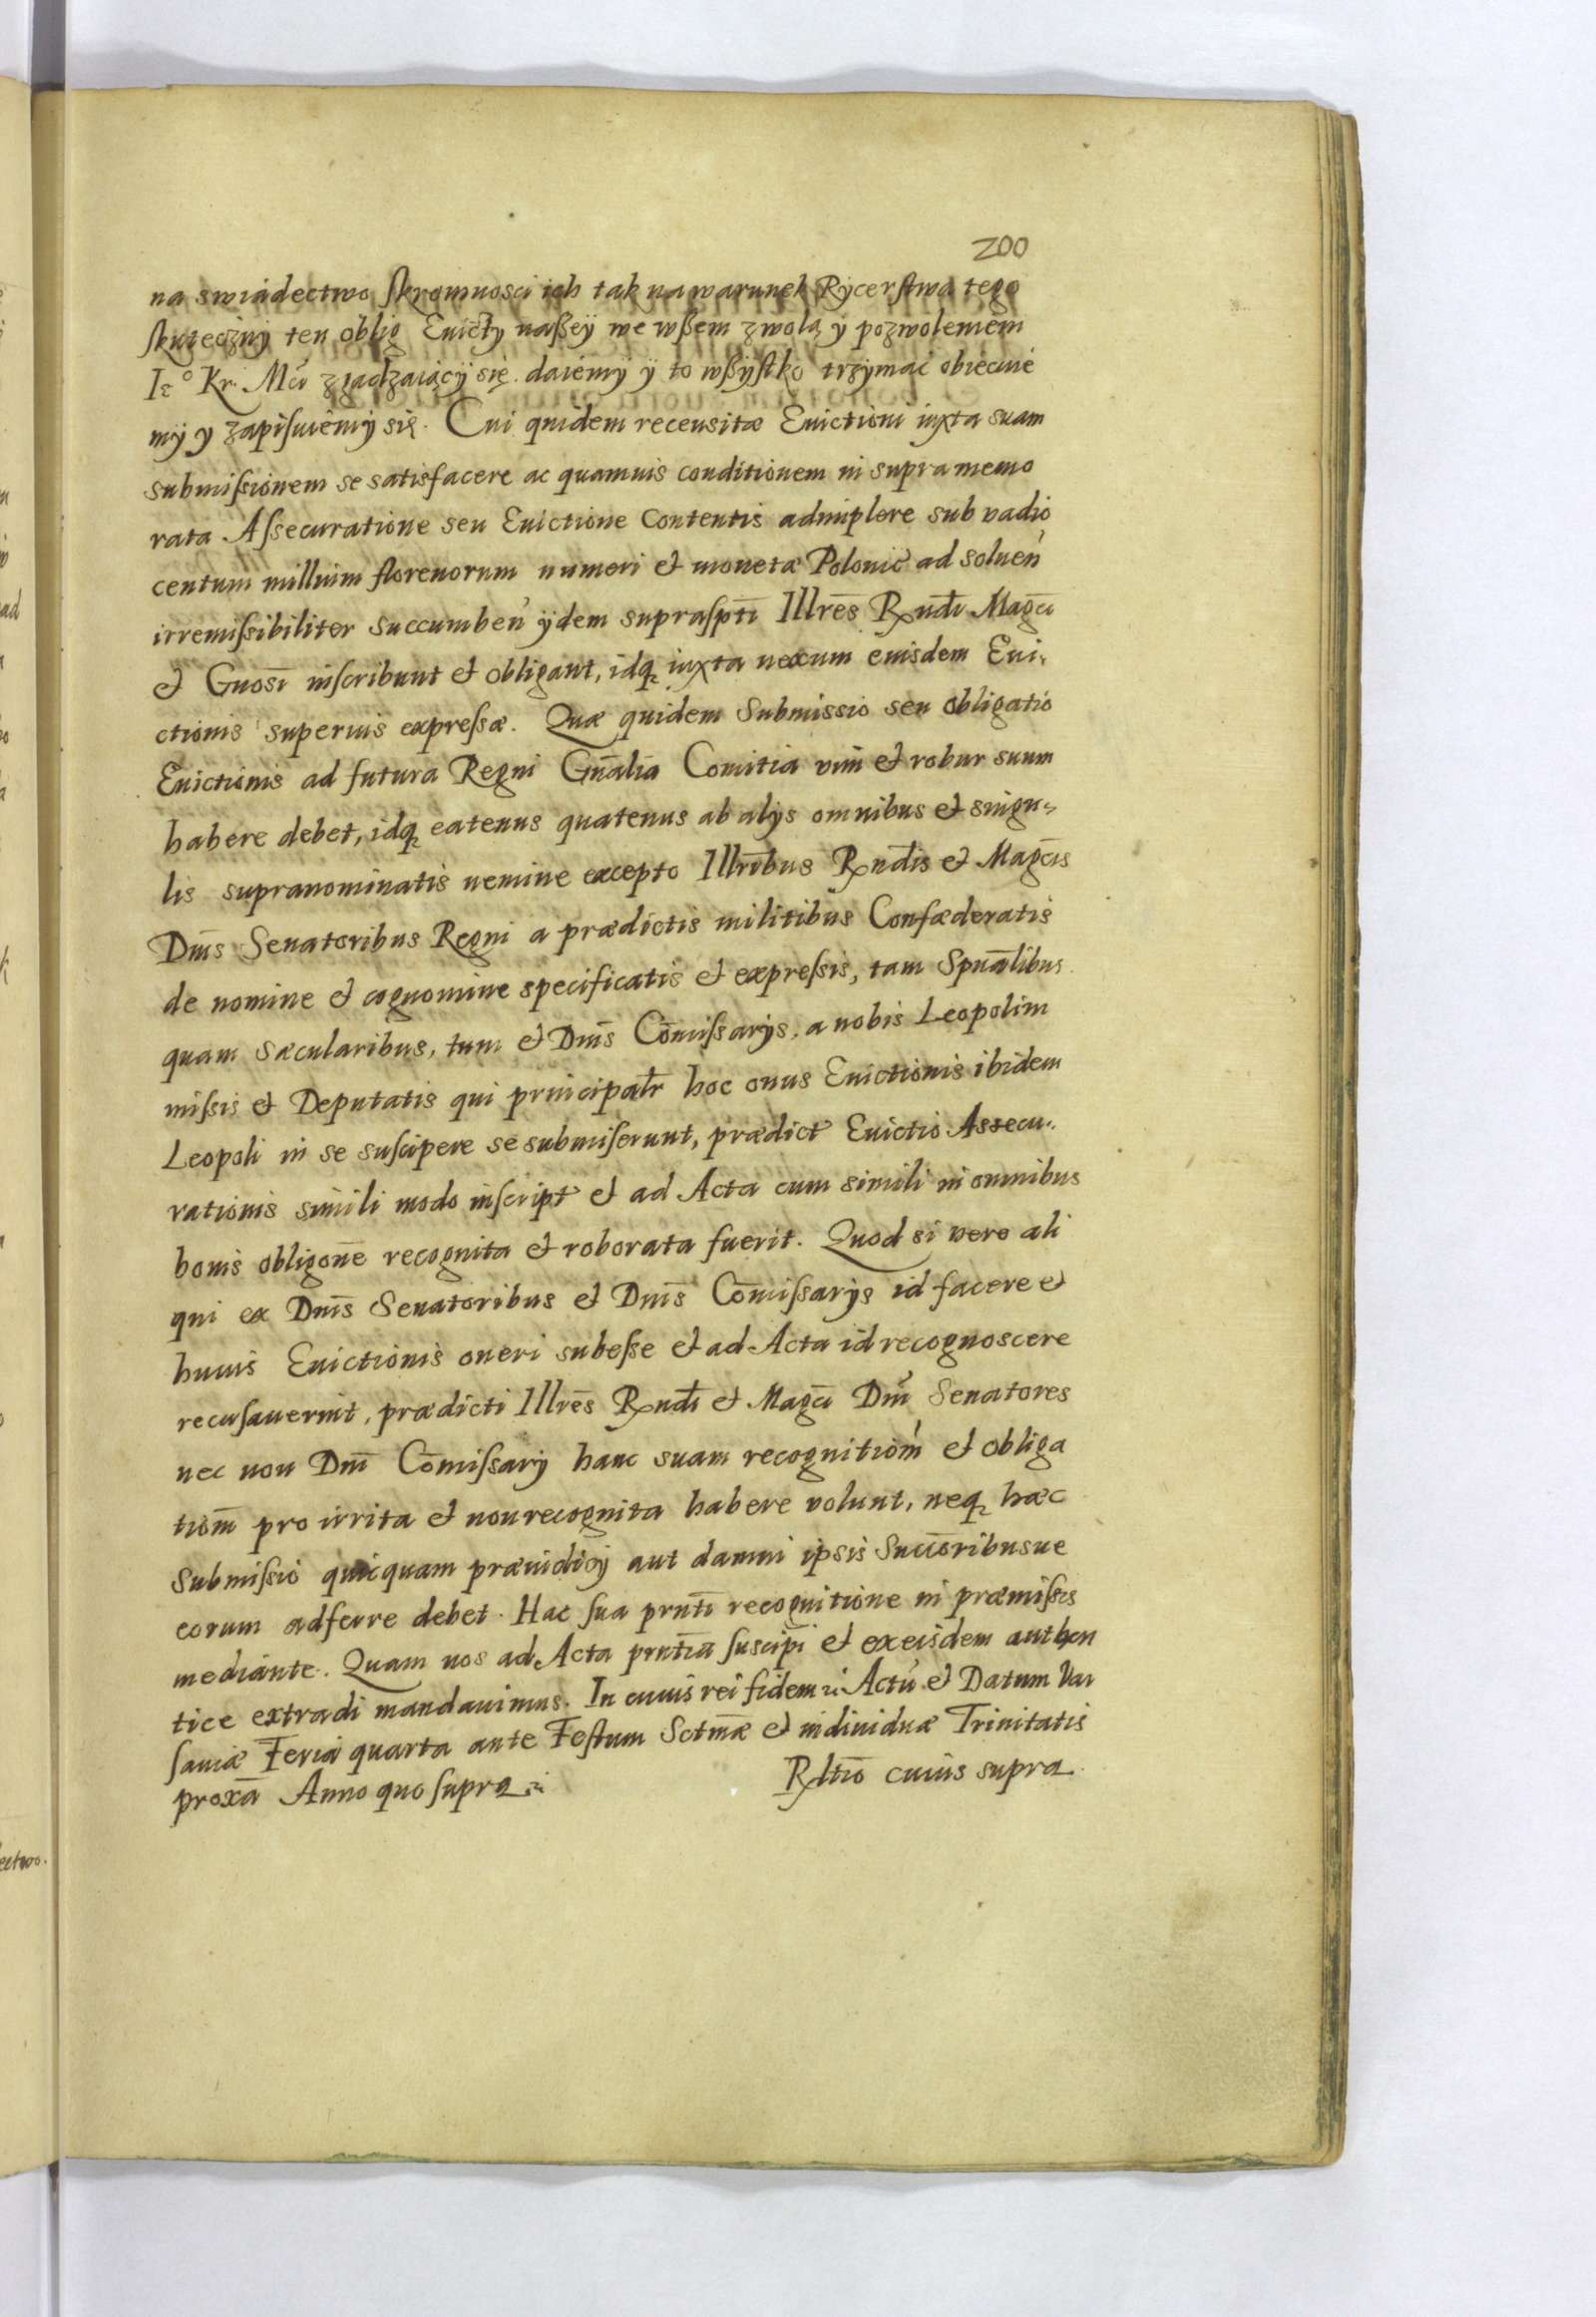 200
na swiadectwo skromnosci ich tak na warunek Rycerstwa tego
skuteczny ten oblig Evicty naßey we wßem z wolą y pozwoleniem
Ieº Kr. Mci zgadzaiący się. daiemy y to wßystko trzymac obiecuie
my y zapisuiemy się. Cui quidem recensitæ Evictioni iuxta suam
submissionem se satisfacere ac quamvis conditionem in supra memo
rata Assecuratione seu Evictione contentis adimplere sub vadio
centum millium florenorum numeri et monetæ Polonic̄ ad soluen̄
irremissibiliter succumben̄ ijdem supraspti Illres Rndi Magci
et Gnosi inscribunt et obligant, idq iuxta nexum eiusdem Evi„
ctionis superius expressæ. Quæ quidem submissio seu obligatio
Evictionis ad futura Regni Gnalia Comitia vim et robur suum
habere debet, idq eatenus quatenus ab alijs omnibus et singu„
lis supranominatis nemine excepto Illribus Rndis et Magcis
Dnis Senatoribus Regni a prædictis militibus Confæderatis
de nomine et cognomine specificatis et expressis, tam Spualibus
quam sæcularibus, tum et Dnis Comissarijs, a nobis Leopolim
missis et Deputatis qui principalr hoc onus Evictionis ibidem
Leopoli in se suscipere se submiserunt, prædict Evictio Assecu„
rationis simili modo inscript et ad Acta cum simili in omnibus
bonis obligone recognita et roborata fuerit. Quod si vero ali
qui ex Dnis Senatoribus et Dnis Comissarijs id facere et
huius Evictionis oneri subesse et ad Acta id recognoscere
recusaverint, prædicti Illres Rndi et Magci Dni Senatores
nec non Dni Comissarij hanc suam recognitiom et obliga
tiom pro irrita et non recognita habere volunt, neq hæc
submissio quicquam præiudicij aut damni ipsis Succoribusue
eorum adferre debet. Hac sua prnti recognitione in præmissis
mediante. Quam nos ad Acta prntia suscipi et ex eisdem authen
tice extradi mandavimus. In cuius rei fidem Actu et Datum Var
saviæ Feria quarta ante Festum Sctmæ et individuæ Trinitatis
proxa Anno quo supra
Rltio cuius supra.